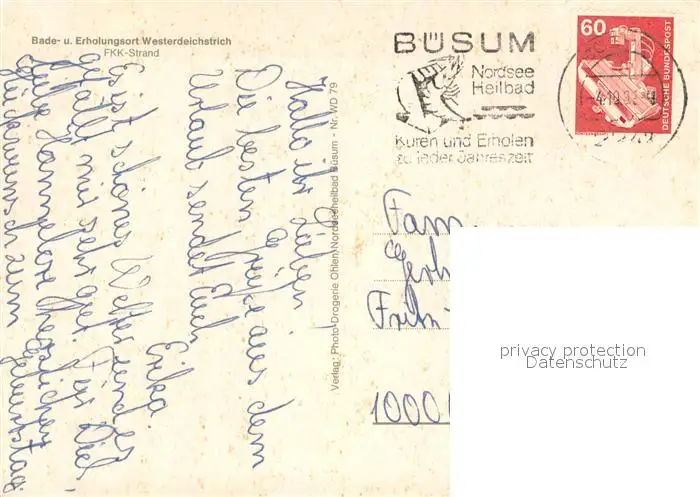 Bade- u. Erholungsort Westerdeichstrich
FKK-Strand
BÜSUM
Nordsee
Heilbad
Kuren und Erholen
zu jeder Jahreszeit
60
DEUTSCHE BUNDESPOST
Hallo ihr Lieben!
Die besten Grüße aus dem
Urlaub sendet Euch
Erika.
Es ist schönes Wetter und es
gefällt mir sehr gut. Für Dich
liebe Hannelore herzlichen
Glückwunsch zum Geburtstag.
Verlag: Photo-Drogerie Ohlen, Nordseeheilbad Büsum - Nr. WD 79
Fam.
Gerh
1000
privacy protection
Datenschutz